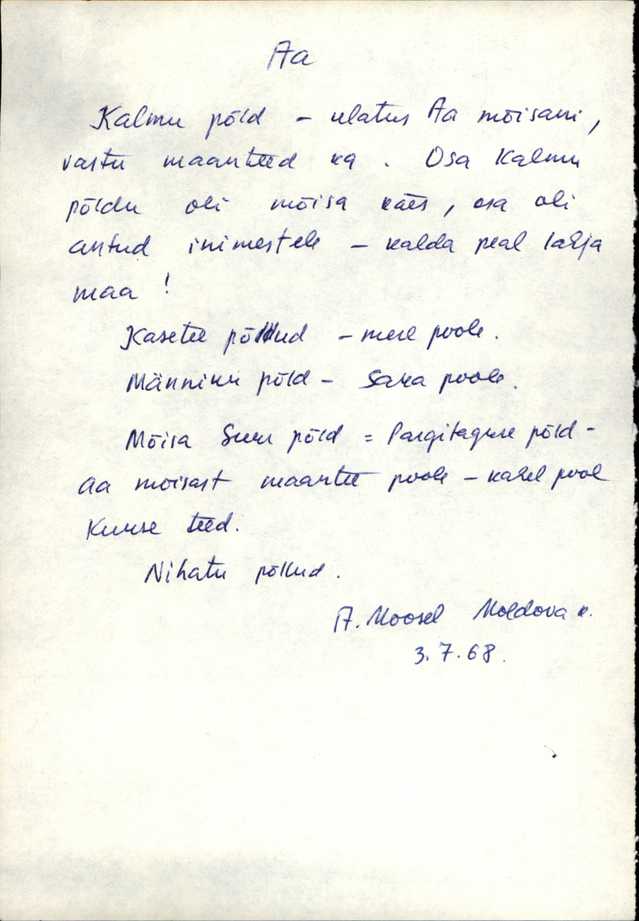 Aa
Kalmu põld – ulatus Aa mõisani,
vastu maanteed ka. Osa Kalmu
põldu oli mõisa käes, osa oli
antud inimestele – kalda peal lahja
maa!
Kasetee põllud – mere poole.
Männiku põld – Saka poole.
Mõisa Suur põld = Pargitaguse põld –
Aa mõisast maantee poole – kahel pool
Kuuse teed.
Nihatu põllud.
A. Moosel Moldova k.
3.7.68.